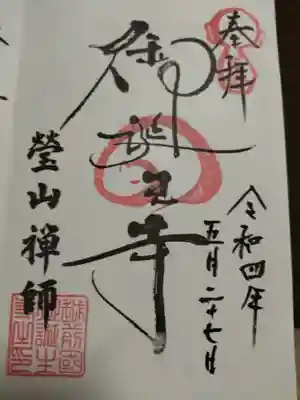 奉拝
令和四年
五月二十七日
御誕生寺
瑩山禅師
越前國
御誕生
寺之印